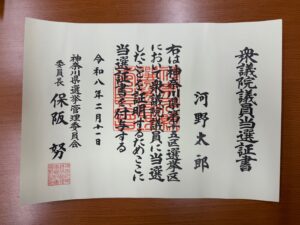 衆議院議員当選証書
河野太郎
右は神奈川県第十五区選挙区
において衆議院議員に当選
したことを証明するためここに
当選証書を付与する
令和八年二月十一日
神奈川県選挙管理委員会
委員長 保阪努